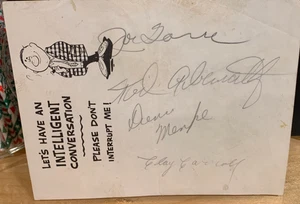 LET'S HAVE AN
INTELLIGENT
CONVERSATION
PLEASE DON'T
INTERRUPT ME!
Joe Torre
Ted Abernathy
Denis
Menke
Clay Carroll